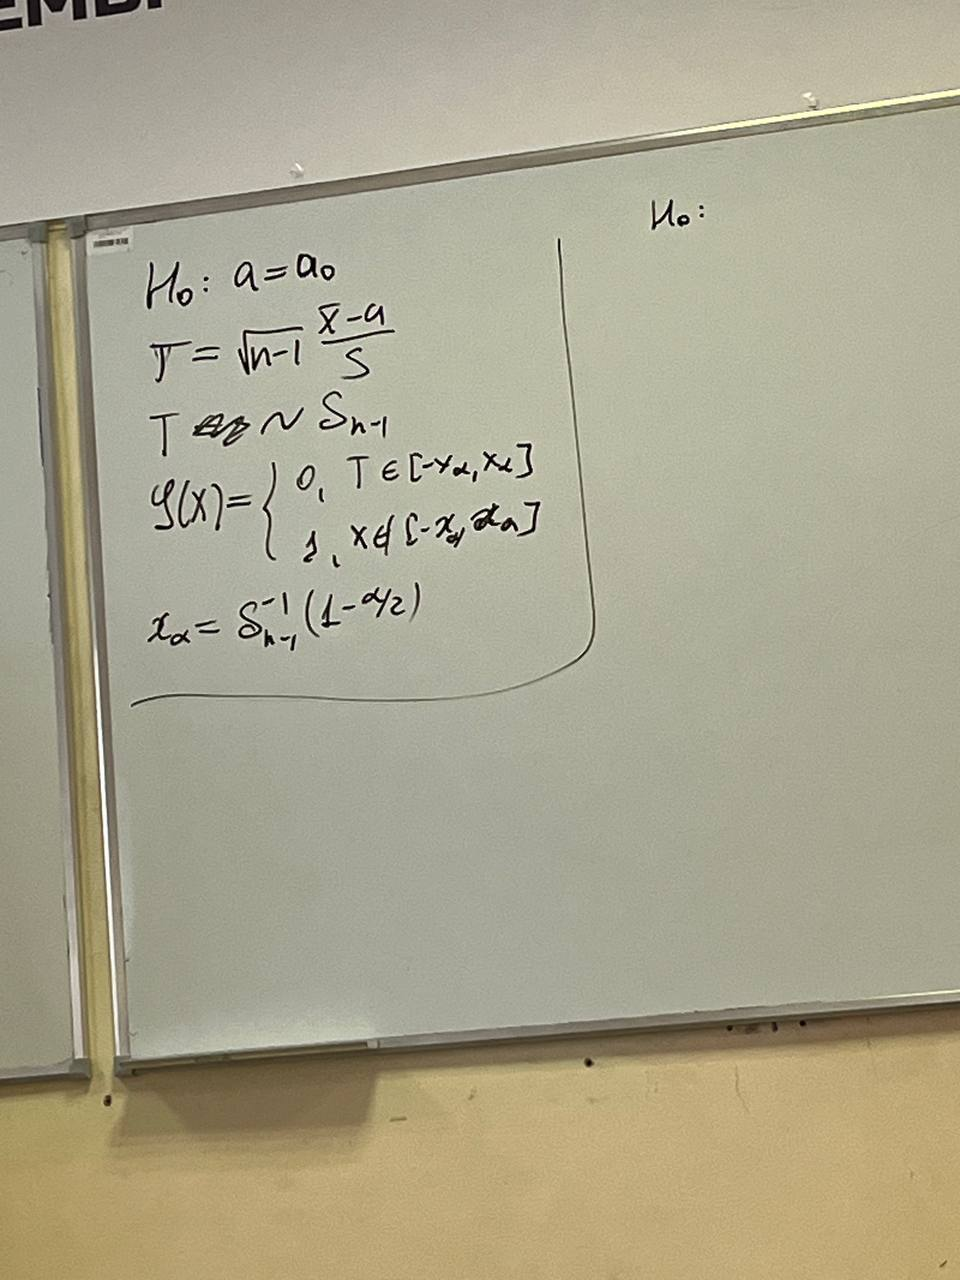 H₀: a = a₀
T = √n-1 x̄-a/S
T ~ Sₙ₋₁
φ(X) = { 0, T ∈ [-xα, xα]
1, x ∉ [-xα, xα]
xα = Sₙ₋₁⁻¹ (1 - α/2)
H₀: